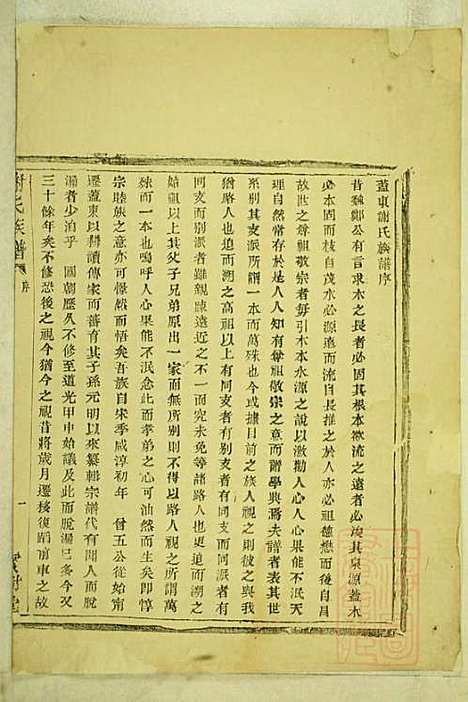 蓋東謝氏族譜序
昔魏鄭公有言求木之長者必固其根本欲流之遠者必浚其泉源蓋木
必本固而枝自茂水必源遠而流自長推之於人亦必祖德懋而後自昌
故世之尊祖敬宗者每引木本水源之說以激勸人心人心果能不泯天
理自然常存於是人人知有尊祖敬宗之意而贈學與爲夫譜者表其世
系別其支派所謂一本而萬殊也今或據目前之族人視之則彼之與我
猶路人也追而溯之高祖以上有同支者有別支者有同支而同派者有
同支而別派者雖親疎遠近之不一而究未免等諸路人也更追而溯之
始祖以上其父子兄弟原出一家而無所別則不得以路人視之所謂萬
殊而一本也嗚呼人心果能不泯念此而孝弟之心可油然而生矣即惇
宗睦族之意亦可恍而悟矣吾族自宋季咸淳初年 曾五公從始甯
遷蓋東以耕讀傳家而蕃育其子孫元明以來纂輯宗譜代有聞人而脫
漏者少泊乎 國朝歷久不修至道光甲申始議及此而脫漏已多今又
三十餘年矣不修恐後之視今猶今之視昔將歲月遷移復蹈前車之故
謝氏族譜 序 一